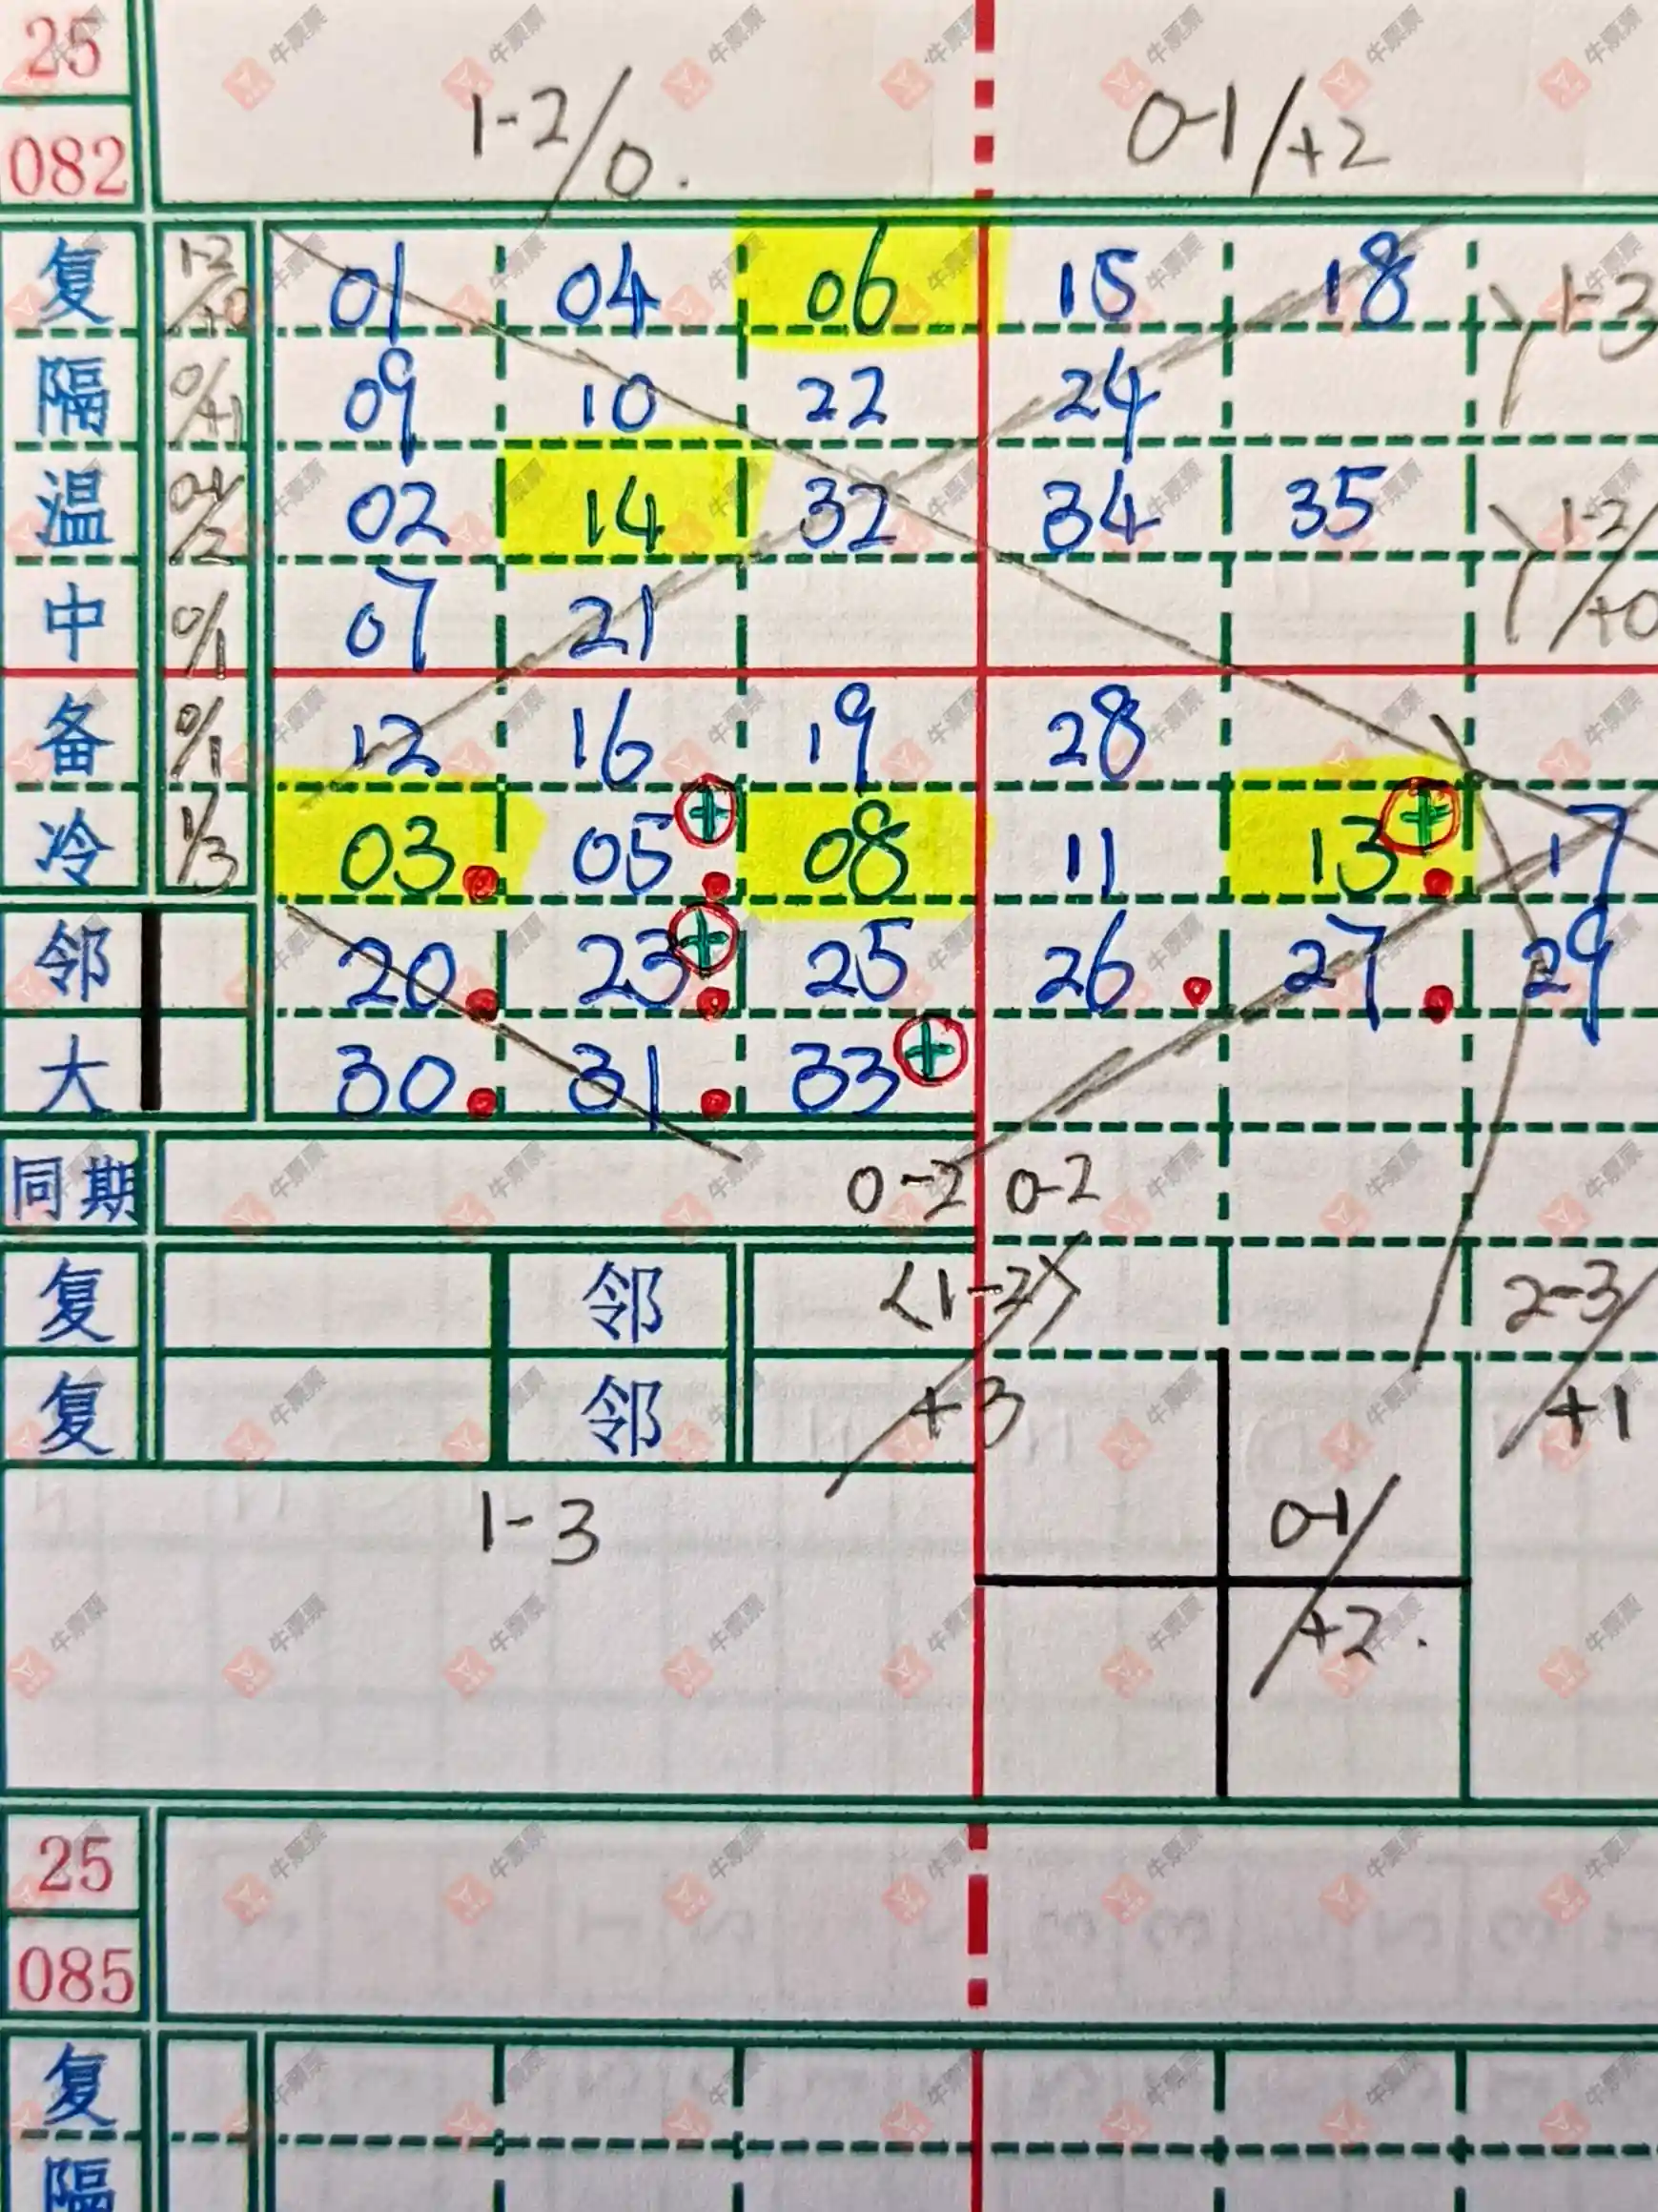 25
082
1-2/0.
0-1/+2
复 1-2/+0 01 04 06 15 18 1-3
隔 0/+1 09 10 22 24
温 0-1/2 02 14 32 34 35 1-2/+0
中 0/1 07 21
备 0/1 12 16 19 28
冷 1/3 03 05 + 08 11 13 + 17
邻 20 23 + 25 26 27 29
大 30 31 33 +
同期 0-2 0-2
复 邻 <1-2> 2-3/
复 邻 +3 +1
1-3 0-1/
+2.
25
085
复
隔
牛票票